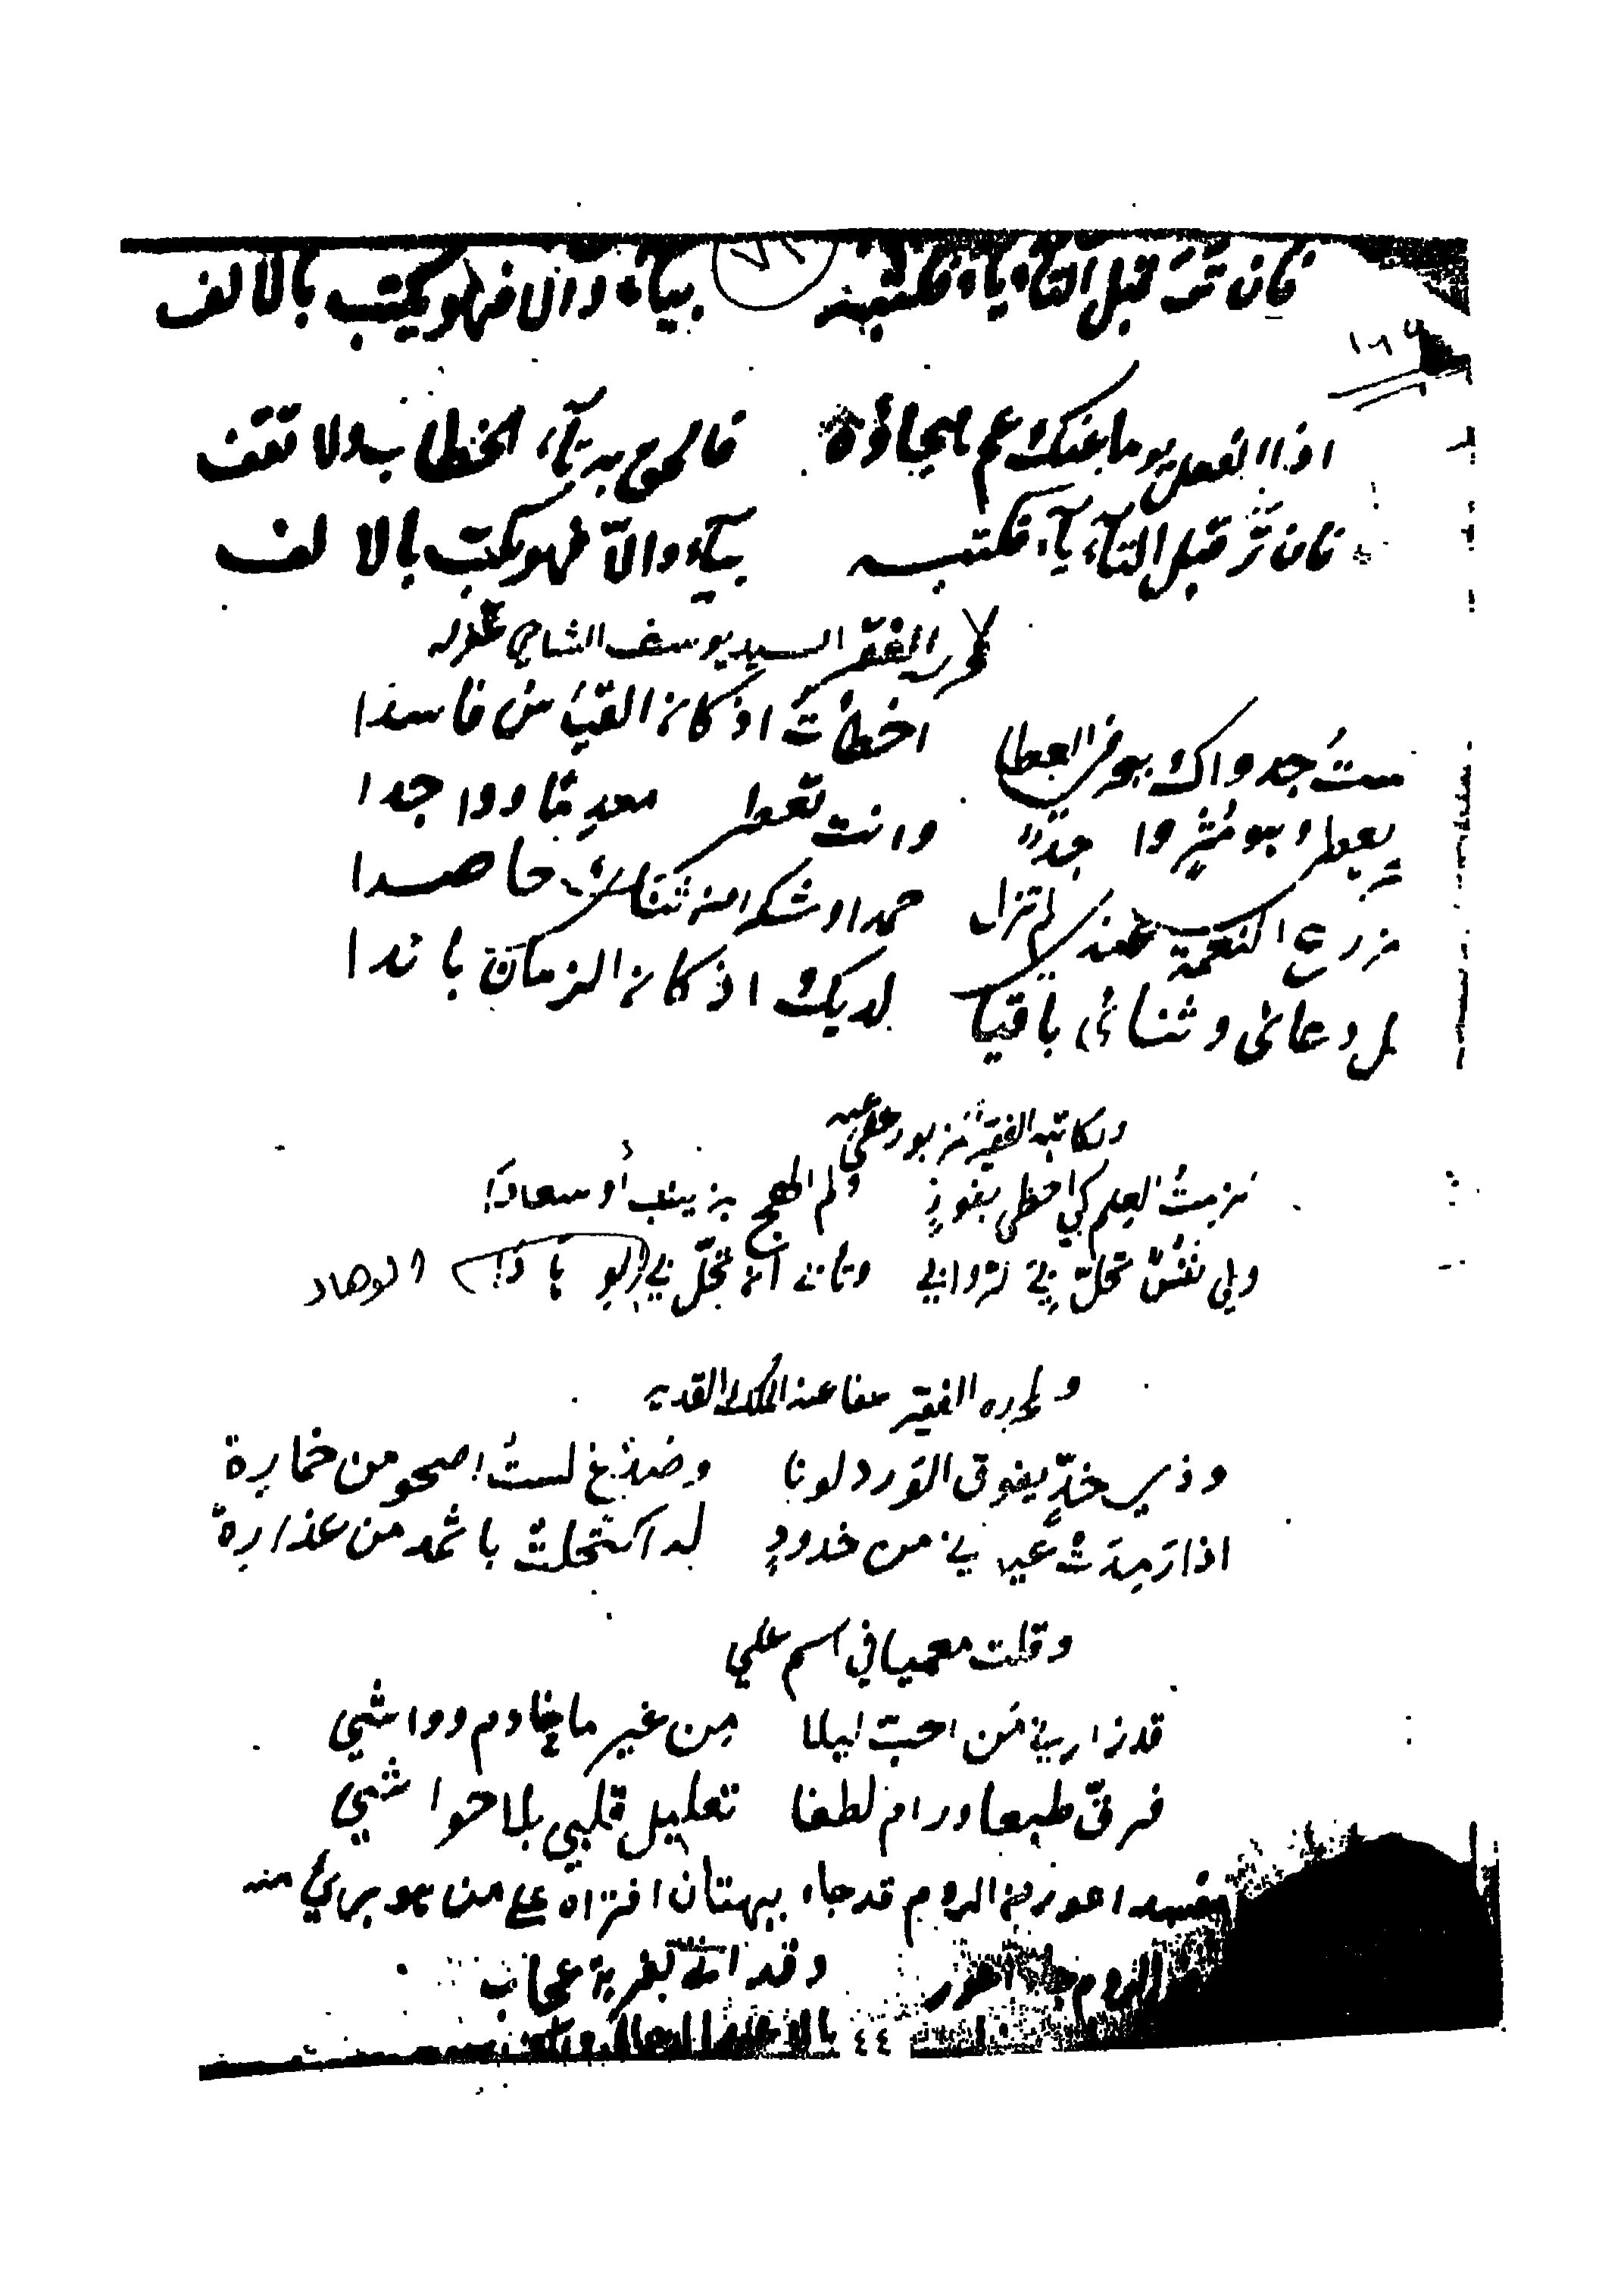 فان تر قبل التاء ياء فكتبه بياء والا فهو يكتب بالالف
اذا الفعل يوما عنك غم هجاؤه فالحق به تآء الخطاب ولا تقف
فان تر قبل التآء يآء فكتبه بيآء والاّ فهو يكتب بالالف
الفقير السيد يوسف الشامي غفرله
جدواك بوفر العطا اخطأت اذ كان القياس فاسدا
وانت تعطي معدما وواجدا
زرع النعمة عند لم تزل حمدا وشكرا من ثناك حاصدا
بل دعائي وثنائي باقيا لديك اذ كان الزمان بائدا
ولكاتبه الفقير مزبور عفي عنه
لزمتُ العلم كي احظى بفوزٍ ولم الهج بزينب أو سعادا
ولي نفسٌ تحلّ في الروابي وتأبى ان تحلّ في الوهاد
ولمحرره الفقير عفا عنه الملك القدير
وذي خدٍّ يفوق الورد لونا وصدغ لستُ اصحو من خماره
اذا رمدت عيوني من خدودٍ به اكتحلت باثمد من عذاره
وقلت معميا في اسم علي
قد زارني من احب ليلا من غير ما خادم وواشي
فرقّ طبعا ورام لطفا تعليل قلبي بلا حواشي
مفسد اعور من الروم قد جاء ببهتان افتراه على من هو بريئ منه
الروم جاء اعور وقد اتى بفرية عجاب
٤٤